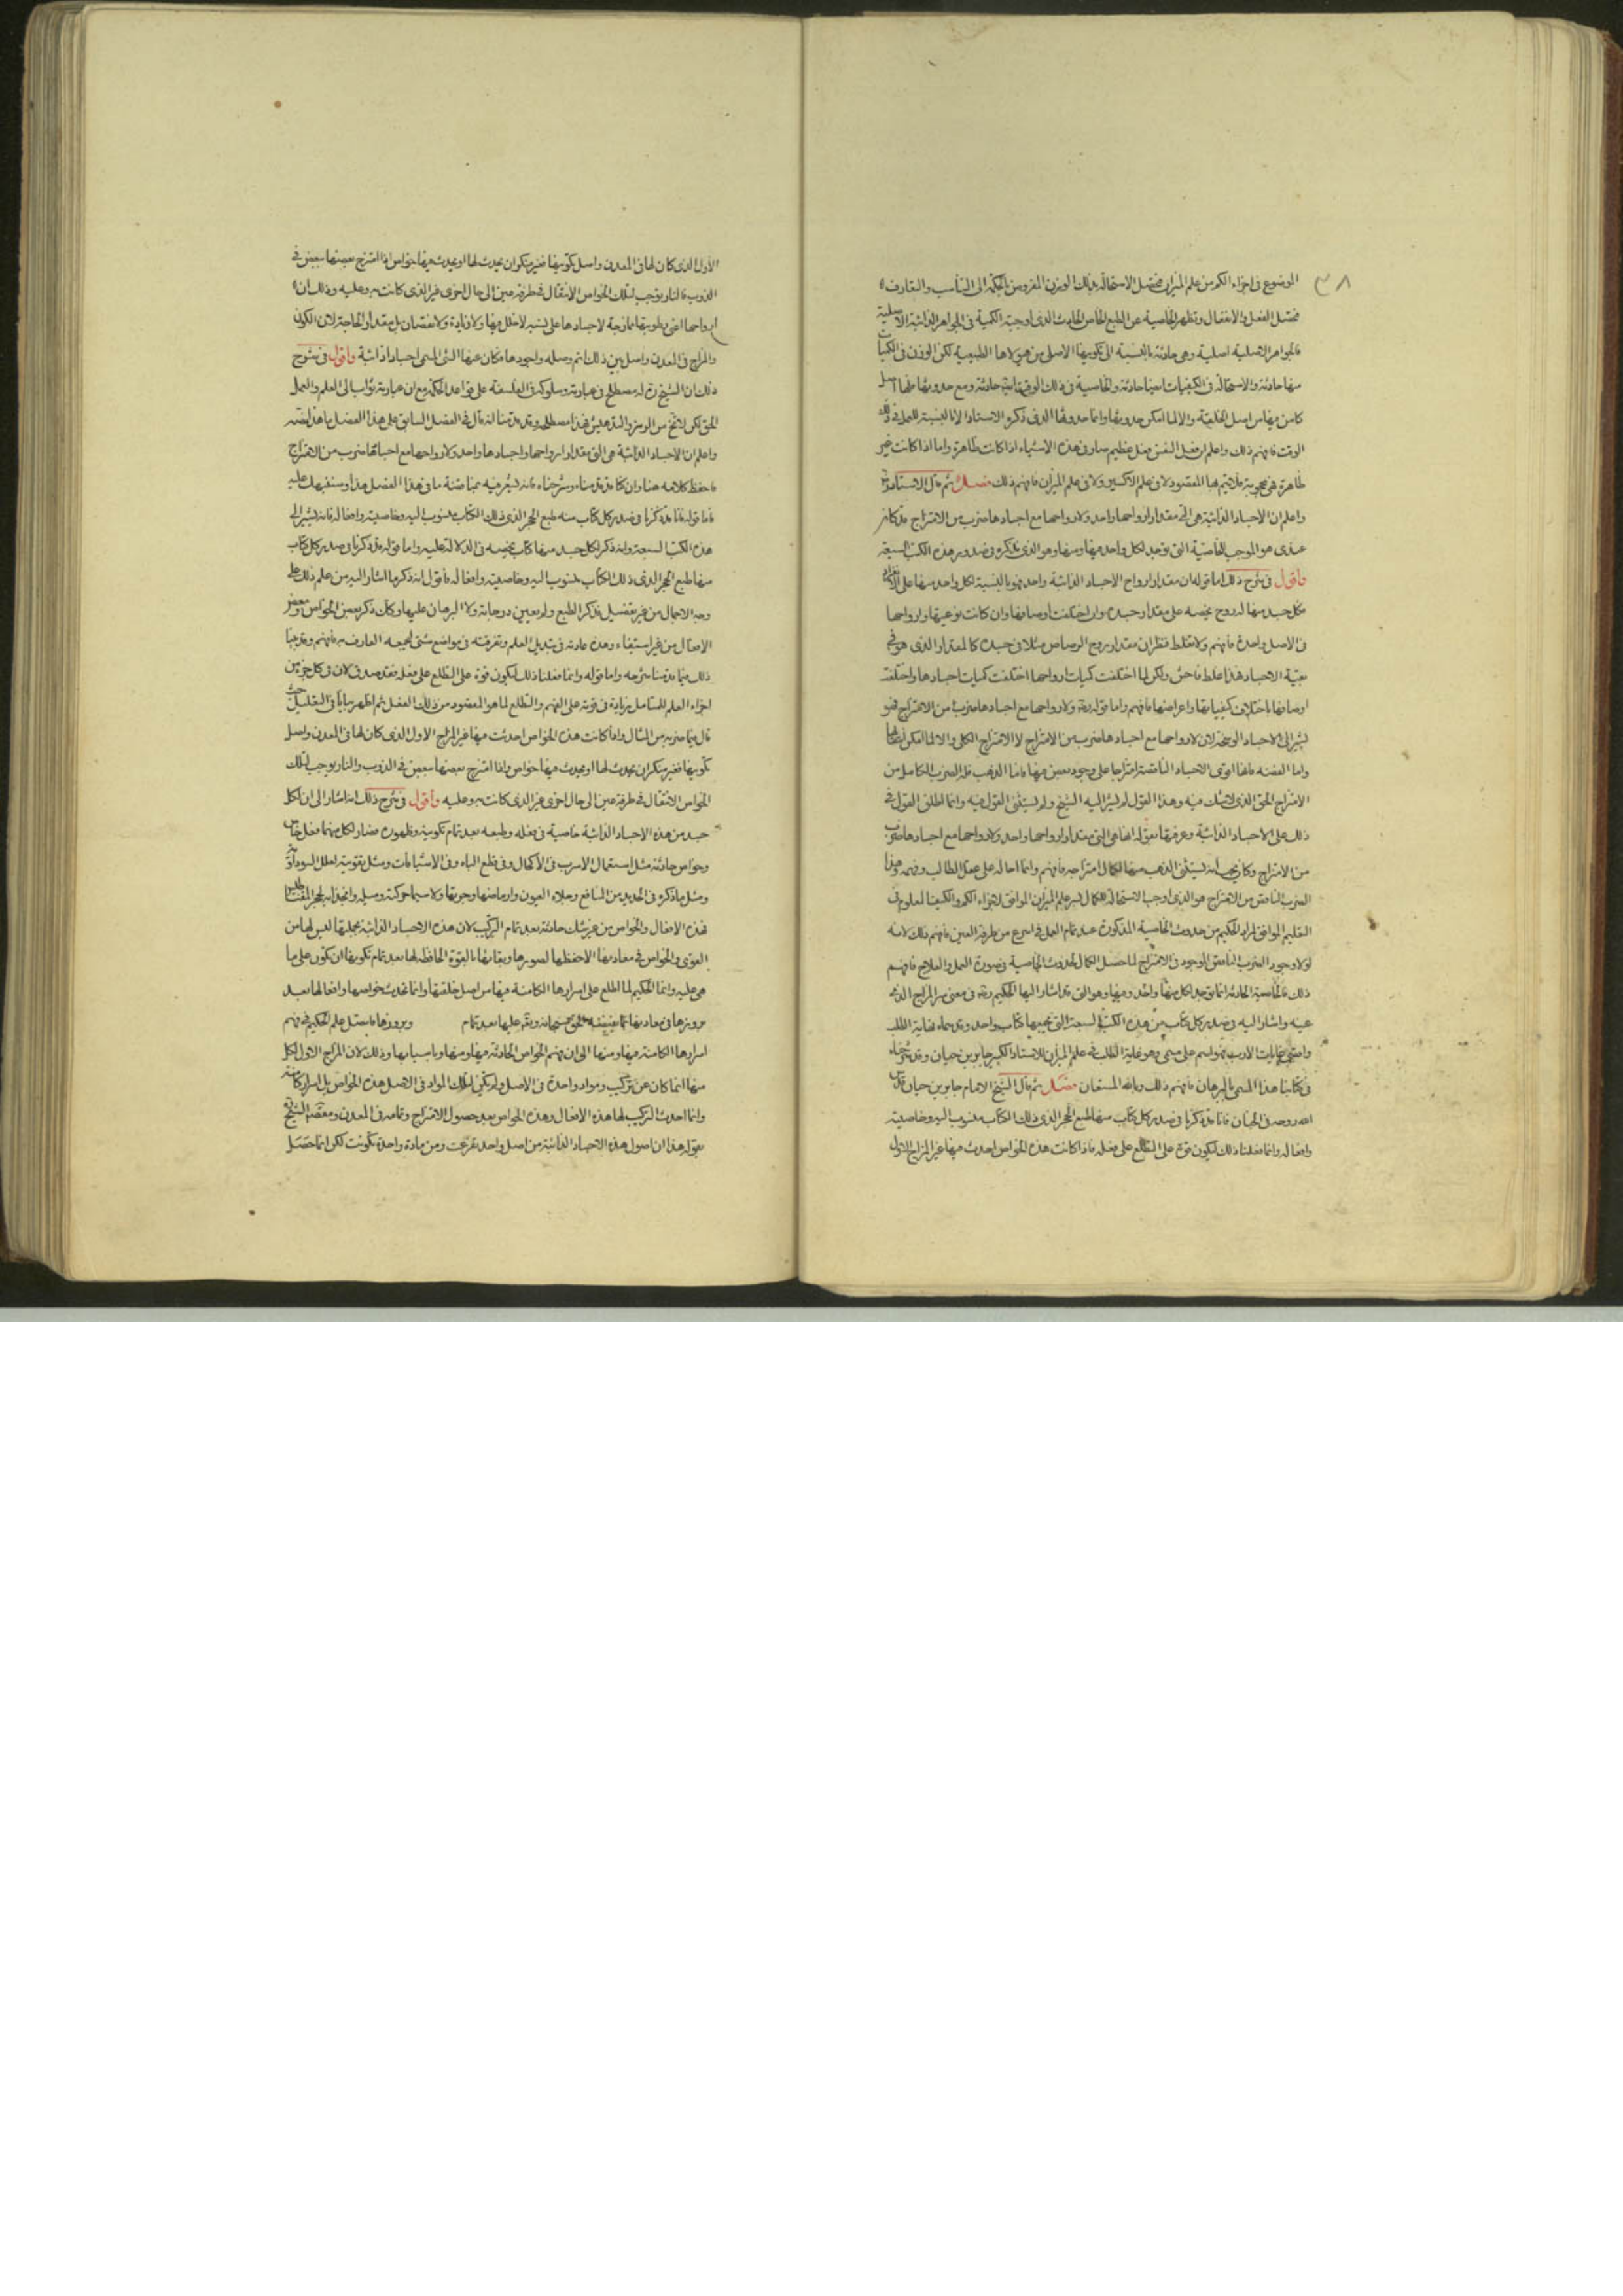 ٣٨
الموضوع في اجزاء الكم من علم الميزان فتحصل الاستحالة بذلك الوزن المفروض بالحكمة الى التناسب والتعارف
فيحصل الفعل والانفعال وتظهر الخاصية عن الطبع الخاص الحادث الذي اوجبته الكمية في الجواهر الذائبة الاصلية
فالجواهر الاصلية اصلية وهي حادثة بالنسبة الى تكوينها الاصلي من هيولاها الطبيعية لكن الوزن في الكميات
منها حادثة والاستحالة في الكيفيات ايضا حادثة والخاصية في ذلك الوقت ايضا حادثة ومع حدوثها فلها اصل
كامن فيها من اصل الخلقية والا لما امكن حدوثها وانما حدوثها الذي ذكره الاستاد الا بالنسبة للعمل في ذلك
الوقت فافهم ذلك واعلم ان فعل النفس فعل عظيم سار في هذه الاشياء اذا كانت طاهرة واما اذا كانت غير
طاهرة فهي محجوبة فلا يتم بها المقصود لا في علم الاكسير ولا في علم الميزان فافهم ذلك فصل ثم قال الاستاد
واعلم ان الاجساد الذائبة هي التي مقدار ارواحها واحد ولارواحها مع اجسادها ضرب من الامتزاج قد كان
عندي هو الموجب للخاصية التي توجد لكل واحد منها ومنها وهو الذي نذكره في صدور هذه الكتب السبعة
واقول في شرح ذلك اما قوله ان مقدار ارواح الاجساد الذائبة واحد فهو بالنسبة لكل واحد منها على
فكل جسد منها له روح يخصه على مقدار جسده وان اختلفت اوصافها وان كانت نوعيتها وارواحها
في الاصل واحدة فافهم ولا تغلط فتظن ان مقدار روح الرصاص مثلا في جسده كالمقدار الذي هو في
بقية الاجساد فهذا غلط فاحش ولكن لما اختلفت كميات ارواحها اختلفت كميات اجسادها واختلفت
اوصافها باختلاف كيفياتها واعراضها فافهم واما قوله ولارواحها مع اجسادها ضرب من الامتزاج فهو
يشير الى الاجساد الوسخة لان لارواحها مع اجسادها ضرب من الامتزاج لا الامتزاج الكلي والا لما امكن
واما الفضة فانها اقوى الاجساد الناقصة امتزاجا على وجود نقص فيها فاما الذهب فله الضرب الكامل من
الامتزاج الحق الذي لا شك فيه وهذا القول لم يشر اليه الشيخ ولم يستثنى القول فيه وانما اطلق القول في
ذلك على الاجساد الذائبة وعرفها بقوله انها هي التي مقدار ارواحها واحد ولارواحها مع اجسادها ضرب
من الامتزاج وكان يجب انه يستثنى الذهب منها لكمال امتزاجه فافهم وانما احاله على عقل الطالب وفهمه وهذا
الضرب الناقص من الامتزاج هو الذي اوجب الاستحالة للكمال بسر علم الميزان الموافق لاجزاء الكم والكيف المعلوم في
التعليم الموافق لمراد الحكيم من حدوث الخاصية المذكورة عند تمام العمل في اسرع من طرفة العين فافهم ذلك لانه
لولا وجود الضرب الناقص الموجود في الامتزاج لما حصل الكمال لحدوث الخاصية في صورة العمل والعلاج فافهم
ذلك فالخاصية الحادثة انما توجد لكل منها واحد ومنها وهو التي قد اشار اليها الحكيم وقد في معنى سر المزاج الذي
عينه واشار اليه في صدر كل كتاب من هذه الكتب السبعة التي يجمعها كتاب واحد وقد سماه نهاية الطلب
واقصى غايات الارب فهو اسم على مسمى وهو غاية الطلب في علم الميزان للاستاد الكبير جابر بن حيان وقد شرحناه
في كتابنا هذا المسمى بالبرهان فافهم ذلك وبالله المستعان فصل ثم قال الشيخ الامام جابر بن حيان قدس
الله روحه في الجنان فانا قد ذكرنا في صدر كل كتاب منها طبع الحجر الذي ذلك الكتاب منسوب اليه وخاصيته
وافعاله وانما فعلنا ذلك لتكون قوة على المطلع على فعله فاذا كانت هذه الخواص احدث فيها غير المزاج الاول
الاول الذي كان لها في المعدن واصل تكوينها فغير منكر ان يحدث لها او يحدث فيها خواص اذا امتزج بعضها ببعض في
الذوب فالنار يوجب لتلك الخواص الانتقال في طرفة عين الى حال اخرى غير الذي كانت فيه وعليه وذلك ان
ارواحها اعني رطوبتها ممازجة لاجسادها على نسبة لا خلل فيها ولا زيادة ولا نقصان بل مقدار الحاجة لان الكون
والمزاج في المعدن واصل بين ذلك اتم وصله واجودها فكان عنها الشي المسمى اجسادا ذائبة واقول في شرح
ذلك ان الشيخ له مصطلح في عباراته وسلوكه في الفلسفة على قواعد الحكمة مع ان عباراته تؤاب الى العلم والعمل
الحق لكن لا تخلو من الرمز والتدهيش فهذا مصطلحه وقد قدمنا انه قال في الفصل السابق على هذا الفصل ما هذا نصه
واعلم ان الاجساد الذائبة هي التي مقدار ارواحها واجسادها واحد ولارواحها مع اجسادها ضرب من الامتزاج
فاحفظ كلامه هنا وان كنا قد قدمناه وشرحناه فانه يشير فيه مناقضة ما في هذا الفصل هذا وسننبهك عليه
فاما قوله فانا قد ذكرنا في صدر كل كتاب منه طبع الحجر الذي ذلك الكتاب منسوب اليه وخاصيته وافعاله فانه يشير الى
هذه الكتب السبعة وانه ذكر لكل جسد منها كتاب يخصه في الدلالة عليه واما قوله قد ذكرنا في صدر كل كتاب
منها طبع الحجر الذي ذلك الكتاب منسوب اليه وخاصيته وافعاله فاقول انه ذكر ما اشار اليه من علم ذلك على
وجه الاجمال من غير تفصيل فذكر الطبع ولم يعين درجاته ولا البرهان عليها وكذلك ذكر بعض الخواص وبعض
الافعال من غير استقصاء وهذه عادته في تبديل العلم وتفرقته في مواضع شتى ليجمعه العارف به فافهم وقد بينا
ذلك فيما قدمنا شرحه واما قوله وانما فعلنا ذلك لتكون قوة على المطلع على فعله فقد صدق لان في كل جزء من
اجزاء العلم للمتامل زيادة في قوته على الفهم والتطلع لما هو المقصود من ذلك الفعل ثم اظهر بيانا في التعليل حيث
قال فيما ضربه من المثال واذا كانت هذه الخواص احدثت فيها غير المزاج الاول الذي كان لها في المعدن واصل
تكوينها فغير منكر ان يحدث لها او يحدث فيها خواص واذا امتزج بعضها ببعض في الذوب والنار يوجب لتلك
الخواص الانتقال في طرفة عين الى حال اخرى غير الذي كانت فيه وعليه واقول في شرح ذلك انه اشار الى ان لكل
جسد من هذه الاجساد الذائبة خاصية في فعله وطبعه بعد تمام تكوينه وظهوره فصار لكل منهما فعل خاص
وخواص حادثة مثل استعمال الاسرب في الاكحال وفي قطع الباه وفي الاشيافات ومثل تقويته لعلل السوداوية
ومثل ما ذكره في الحديد من المنافع وجلاء العيون واوماضها وجربها ولا سيما حركته وميله وانجذابه لحجر المغناطيس
فهذه الافعال والخواص من غير شك حادثة بعد تمام التركيب لان هذه الاجساد الذائبة بجملتها ليس لها من
القوى والخواص في معادنها الا حفظها لصورها وبقائها بالقوة الحافظة لها بعد تمام تكوينها ان تكون على ما
هي عليه وانما الحكيم لما اطلع على اسرارها الكامنة فيها من اصل خلقتها وانما تحدث خواصها وافعالها بعد
بروزها في معادنها بما يفيضه الحق سبحانه وتعالى عليها بعد تمام وبروزها فاستدل علم الحكيم في فهم
اسرارها الكامنة فيها ومنها الى ان فهم الخواص الحادثة فيها ومنها وباسبابها وذلك لان المزاج الاول لكل
منها انما كان عن تركيب ومواد واحدة في الاصل ولم تكن لتلك المواد في الاصل هذه الخواص بل اسرار كامنة
وانما احدث التركيب لها هذه الافعال وهذه الخواص بعد حصول الامتزاج وتمامه في المعدن ومقصد الشيخ
بقوله هذا ان اصول هذه الاجساد الذائبة من اصل واحد تفرعت ومن مادة واحدة تكونت لكن انما حصل